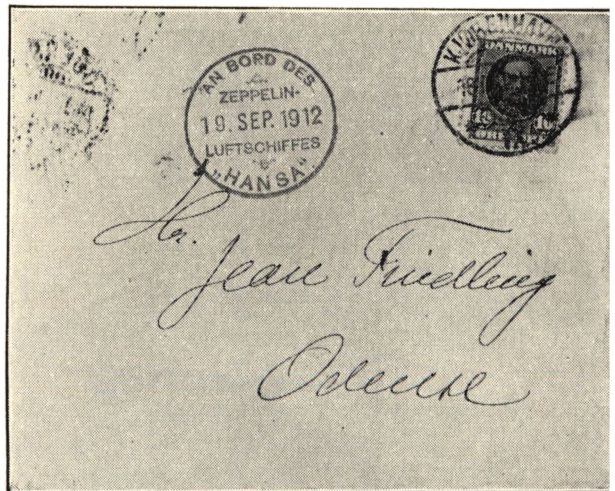 AN BORD DES
ZEPPELIN-
19. SEP. 1912
LUFTSCHIFFES
„HANSA“
KJØBENHAVN
DANMARK
10 10
ØRE
Hr.
Jean Friedling
Odense